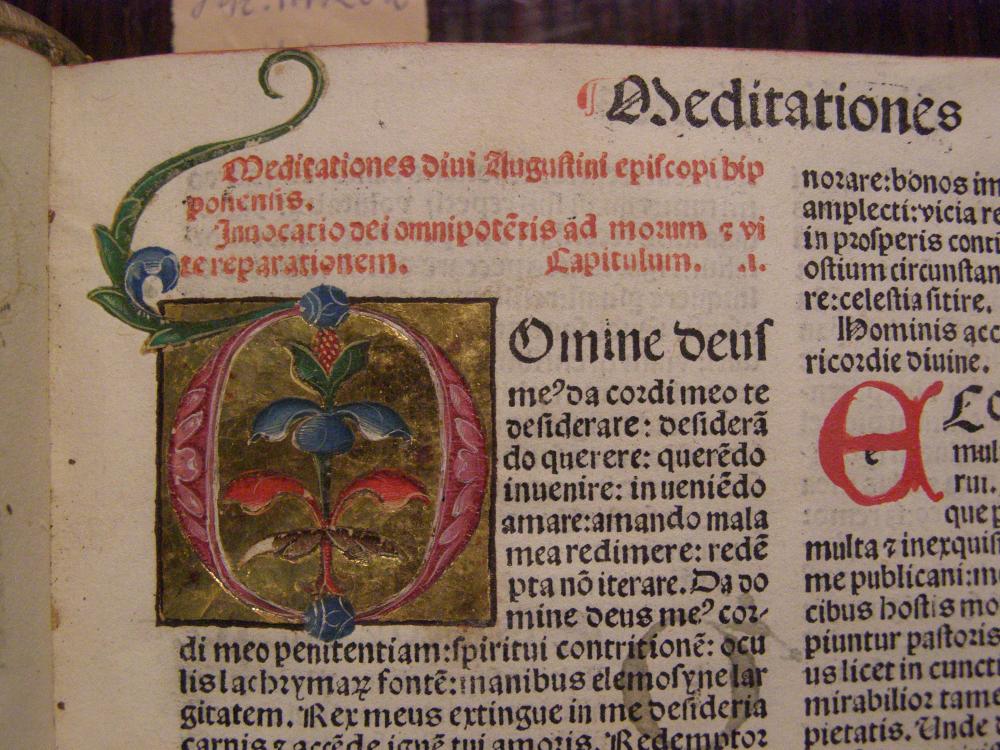 ¶ Meditationes
Meditationes diui Augustini episcopi hip
ponensis.
Inuocatio dei omnipotẽtis ad morum ⁊ vi
te reparationem. Capitulum. .i.
Omine deus
meꝰ da cordi meo te
desiderare: desiderã
do querere: querẽdo
inuenire: inueniẽdo
amare: amando mala
mea redimere: redẽ
pta nõ iterare. Da do
mine deus meꝰ cor-
di meo penitentiam: spiritui contritionẽ: ocu
lis lachrymaꝝ fontẽ: manibus elemosyne lar
gitatem. Rex meus extingue in me desideria
carnis ⁊ accẽde ignẽ tui amoris. Redemptor
norare: bonos im
amplecti: vicia re
in prosperis conti
ostium circunstan
re: celestia sitire.
Hominis acc
ricordie diuine.
e
mul
rui.
que p
multa ⁊ inexquis
me publicani: m
cibus hostis mo
piuntur pastoris
us licet in cuncti
mirabilior tame
pietatis. Unde